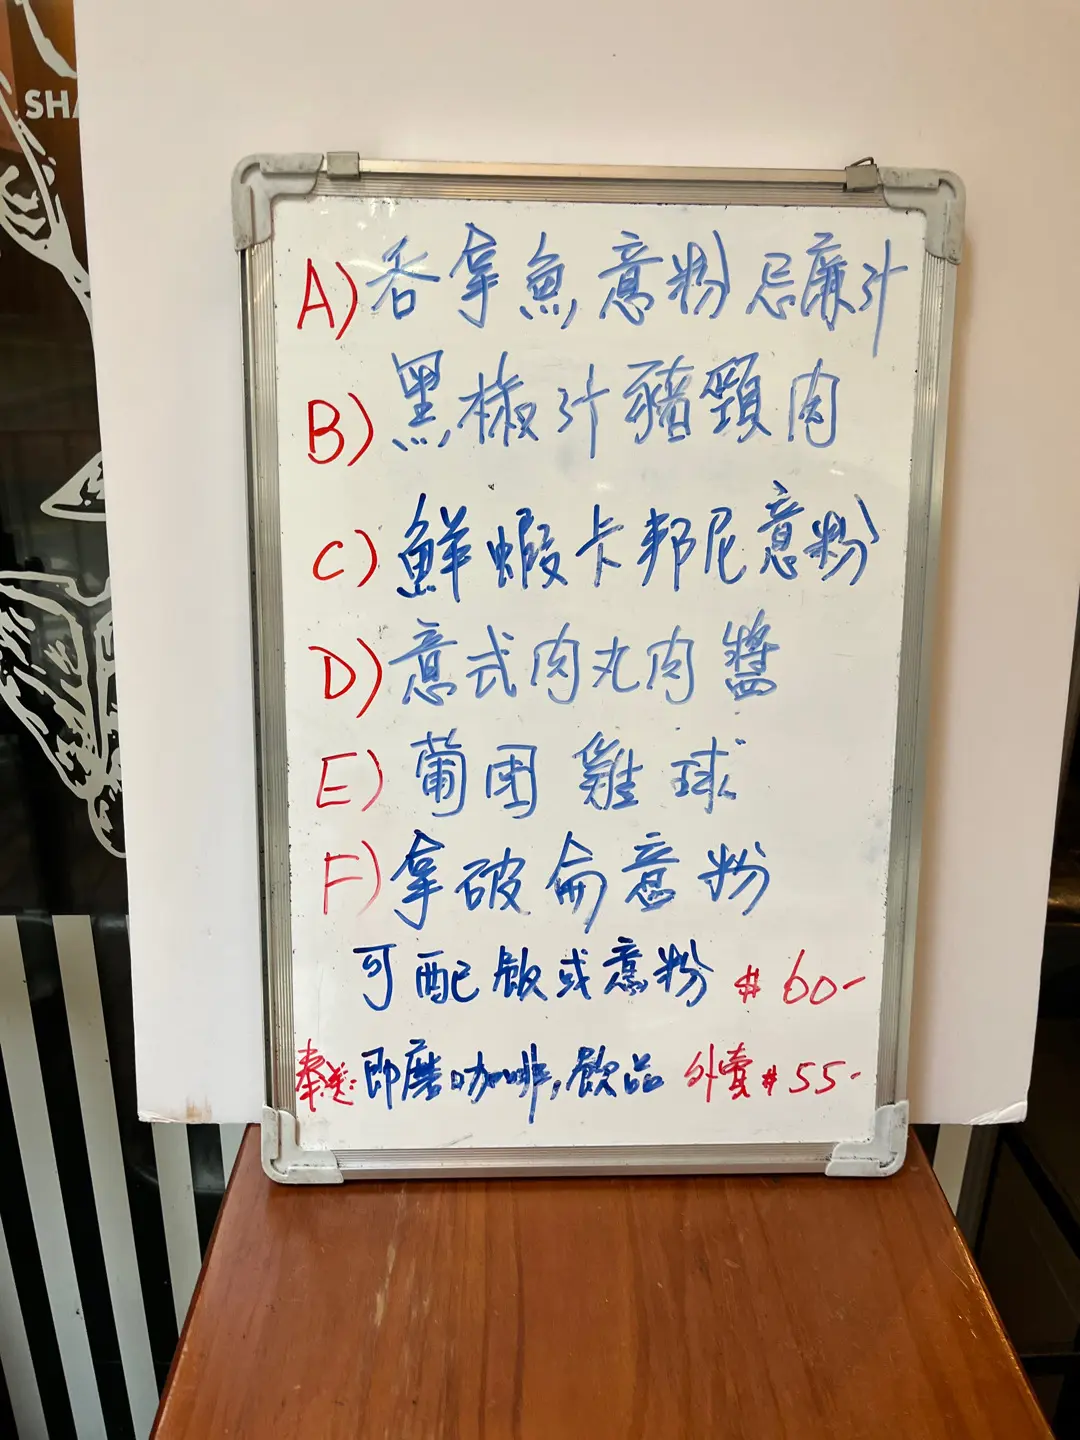 SHA
A) 吞拿魚意粉忌廉汁
B) 黑椒汁豬頸肉
C) 鮮蝦卡邦尼意粉
D) 意式肉丸肉醬
E) 葡囯雞球
F) 拿破侖意粉
可配飯或意粉 $60-
奉送:即磨咖啡,飲品 外賣$55-